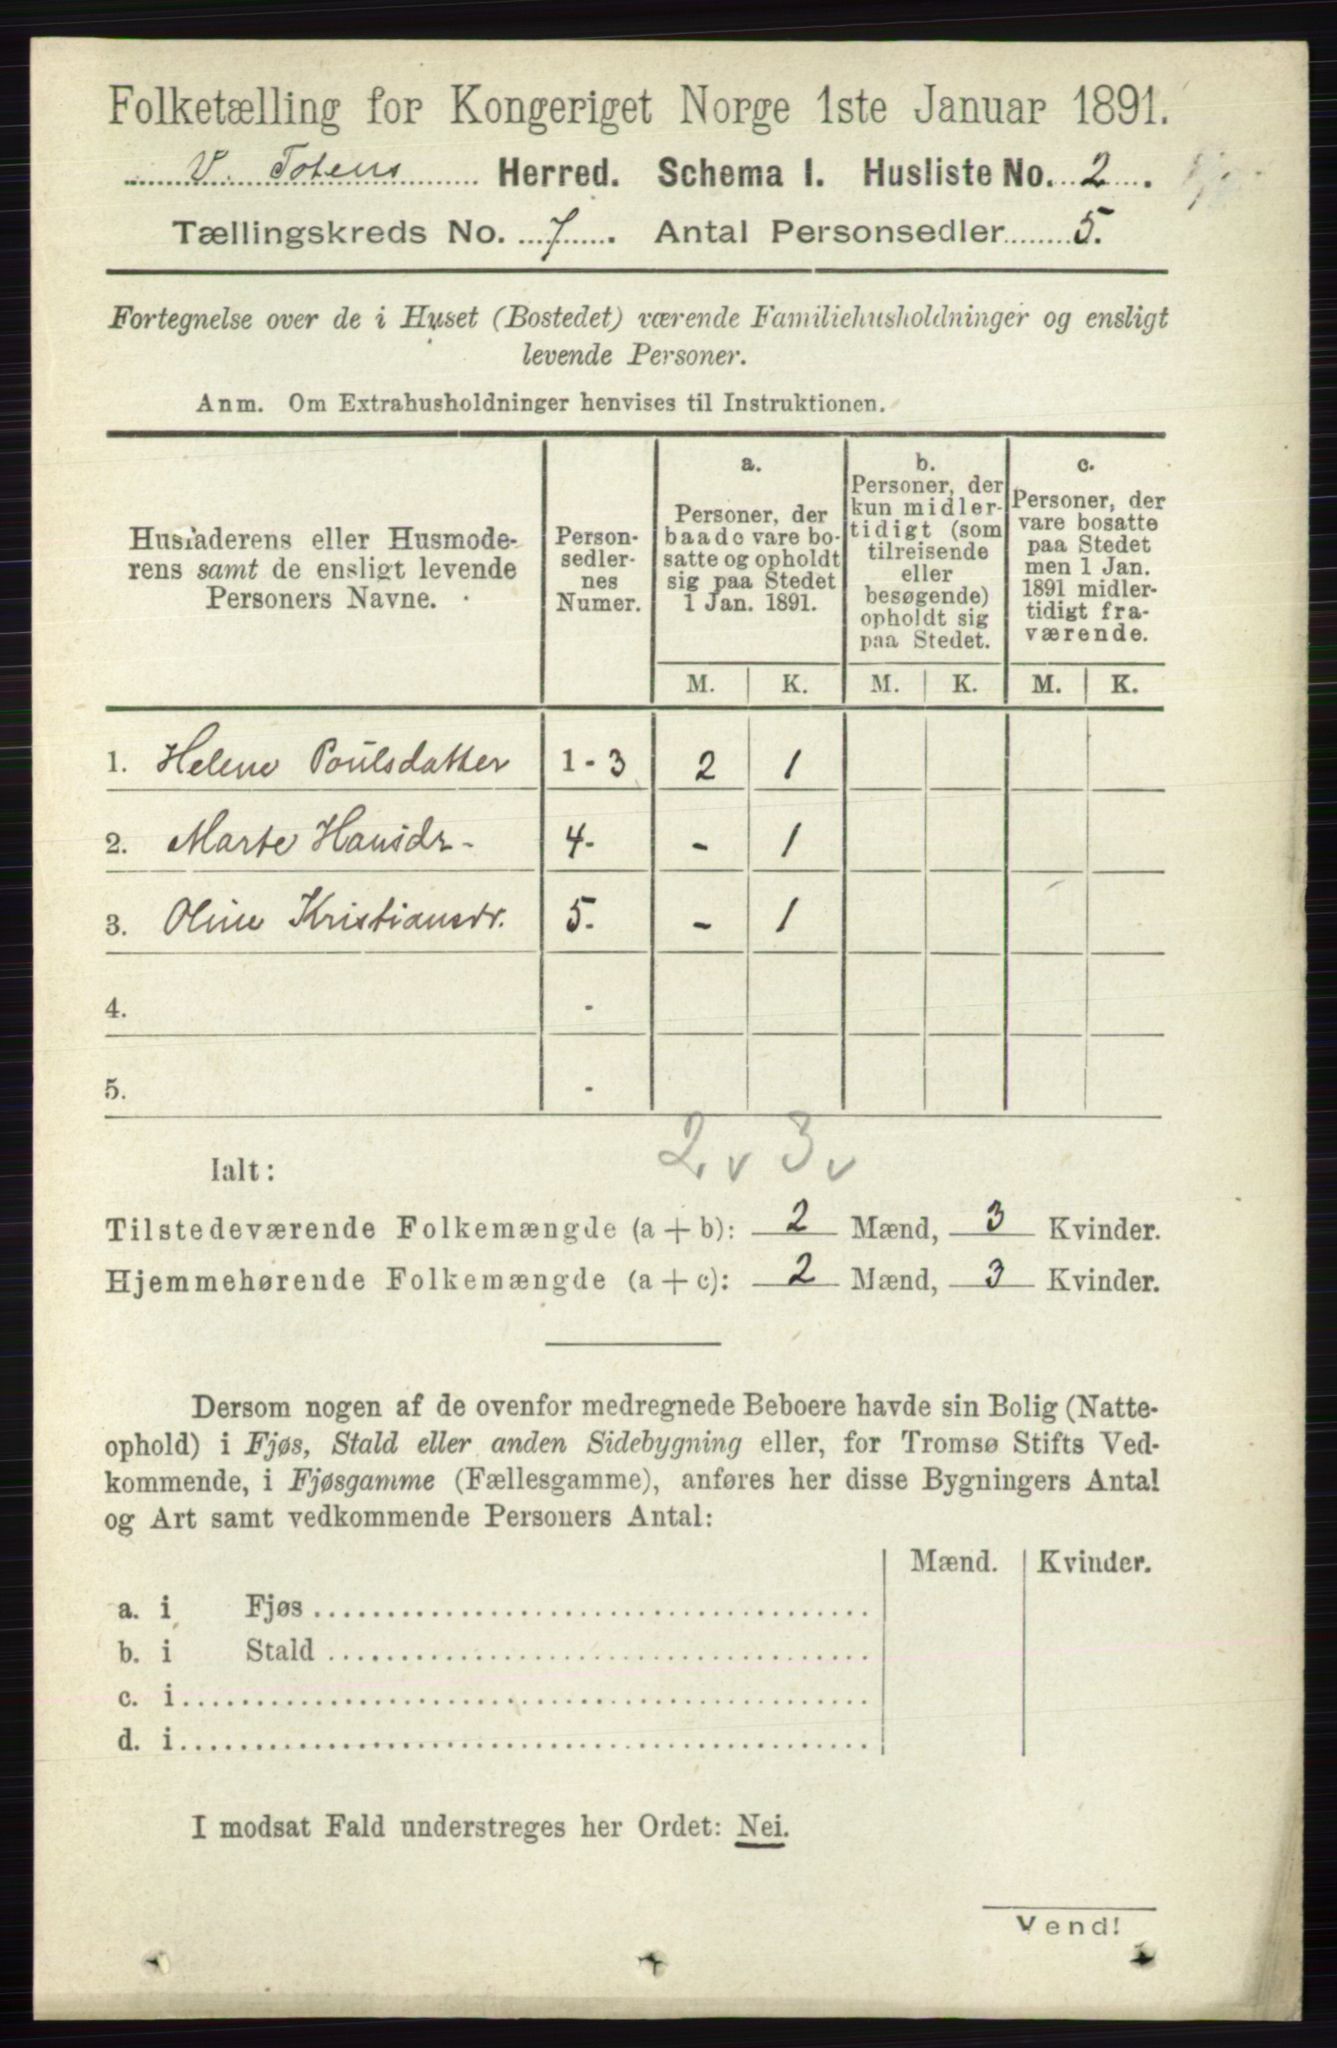 Folketælling for Kongeriget Norge 1ste Januar 1891.
V. Totens Herred. Schema I. Husliste No. 2.
Tællingskreds No. 7. Antal Personsedler 5.
Fortegnelse over de i Huset (Bostedet) værende Familiehusholdninger og ensligt
levende Personer.
Anm. Om Extrahusholdninger henvises til Instruktionen.
Husfaderens eller Husmoderens samt de ensligt levende Personers Navne.
Personsedlernes Numer.
a.
Personer, der baade vare bosatte og opholdt sig paa Stedet 1 Jan. 1891.
b.
Personer, der kun midlertidigt (som tilreisende eller besøgende) opholdt sig paa Stedet.
c.
Personer, der vare bosatte paa Stedet men 1 Jan. 1891 midlertidigt fraværende.
M. K. M. K. M. K.
1. Helene Poulsdatter 1-3 2 1
2. Marte Hansdr- 4- - 1
3. Oline Kristiansdr. 5- - 1
4. -
5. -
2 v 3 v
Ialt:
Tilstedeværende Folkemængde (a + b): 2 Mænd, 3 Kvinder.
Hjemmehørende Folkemængde (a + c): 2 Mænd, 3 Kvinder.
Dersom nogen af de ovenfor medregnede Beboere havde sin Bolig (Natte-
ophold) i Fjøs, Stald eller anden Sidebygning eller, for Tromsø Stifts Ved-
kommende, i Fjøsgamme (Fællesgamme), anføres her disse Bygningers Antal
og Art samt vedkommende Personers Antal:
Mænd. Kvinder.
a. i Fjøs
b. i Stald
c. i
d. i
I modsat Fald understreges her Ordet: Nei.
Vend!